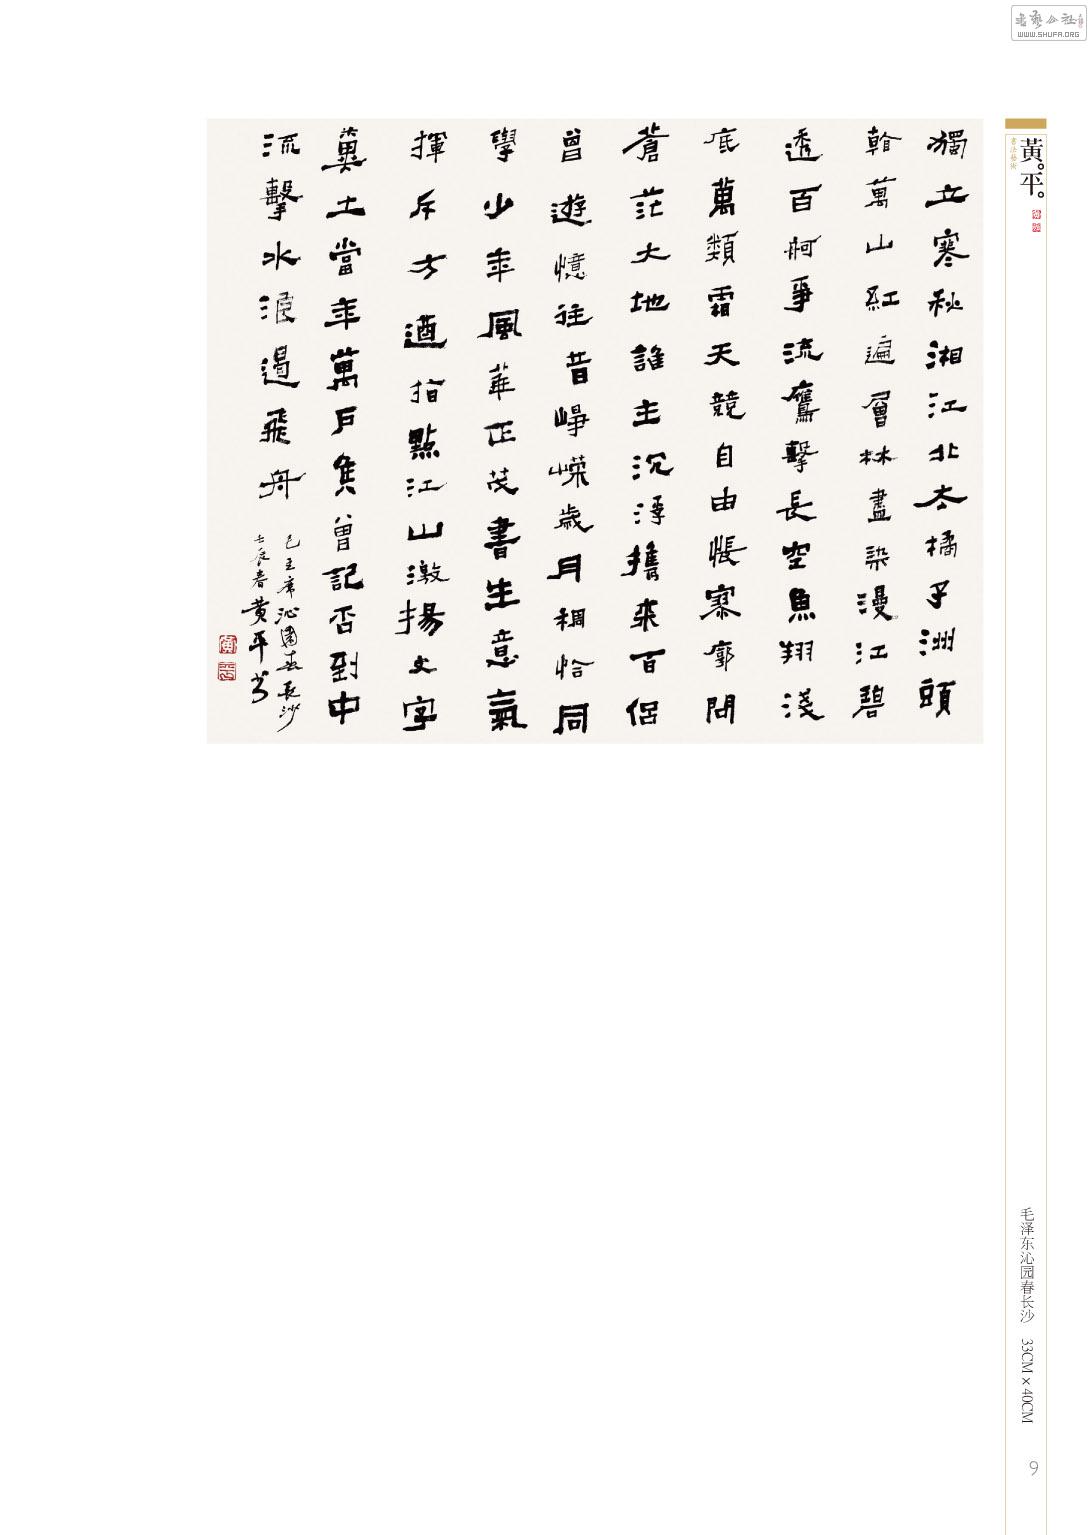 書藝公社
WWW.SHUFA.ORG
黃平
書法藝術
獨立寒秋湘江北去橘子洲頭
看萬山紅遍層林盡染漫江碧
透百舸爭流鷹擊長空魚翔淺
底萬類霜天競自由悵寥廓問
蒼茫大地誰主沉浮攜來百侶
曾遊憶往昔崢嶸歲月稠恰同
學少年風華正茂書生意氣
揮斥方遒指點江山激揚文字
糞土當年萬戶矦曾記否到中
流擊水浪遏飛舟
毛主席沁園春長沙
壬辰春黃平书
毛泽东沁园春长沙 33CM×40CM
9